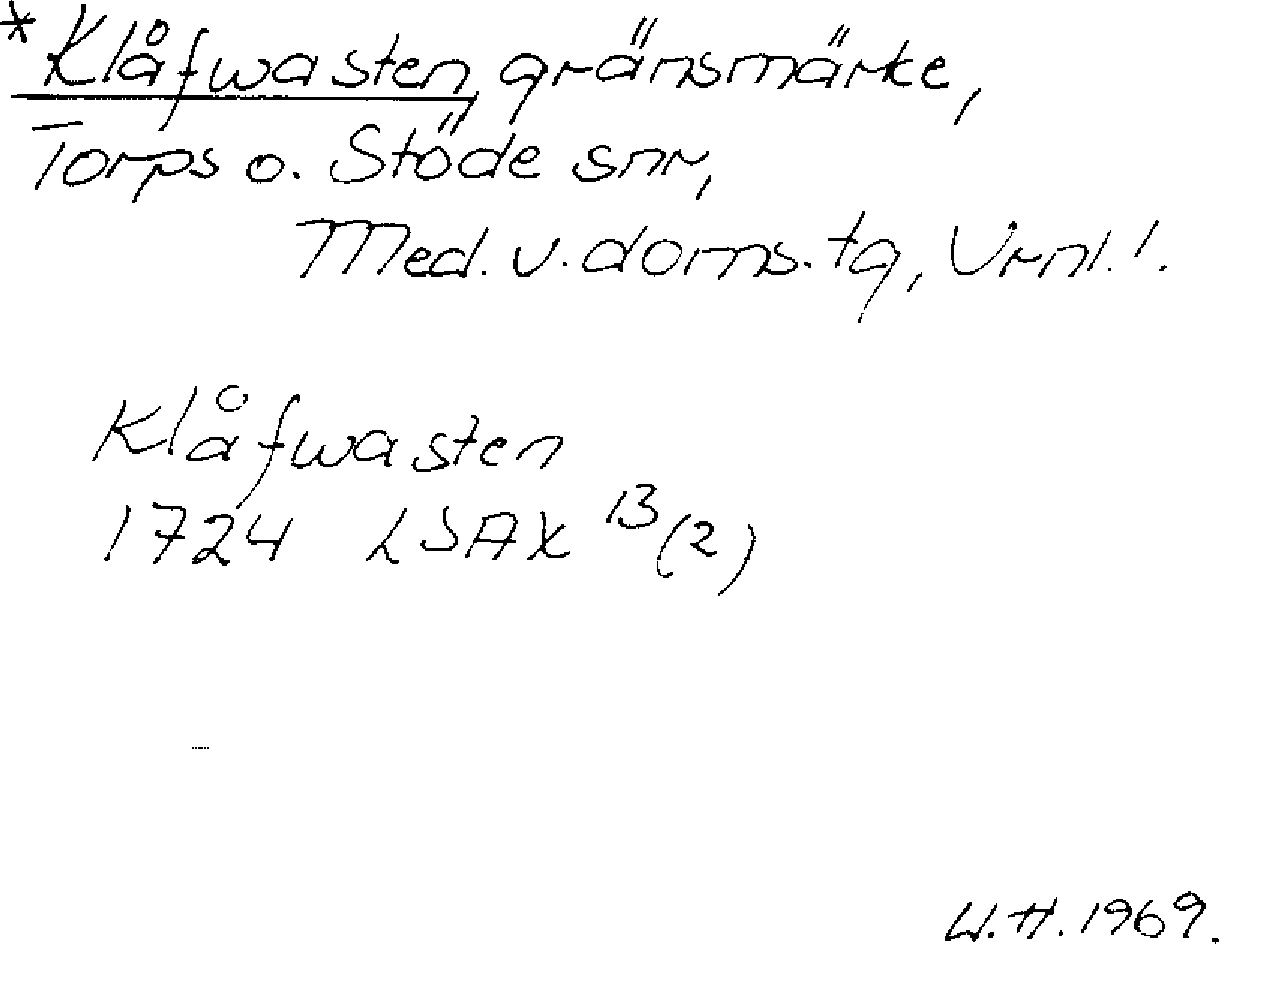 *Klåfwasten, gränsmärke,
Torps o. Stöde snr,
Med. v. doms. tg, Vrnl.!.
Klåfwasten
1724 LSAX 13/(2)
W.H. 1969.